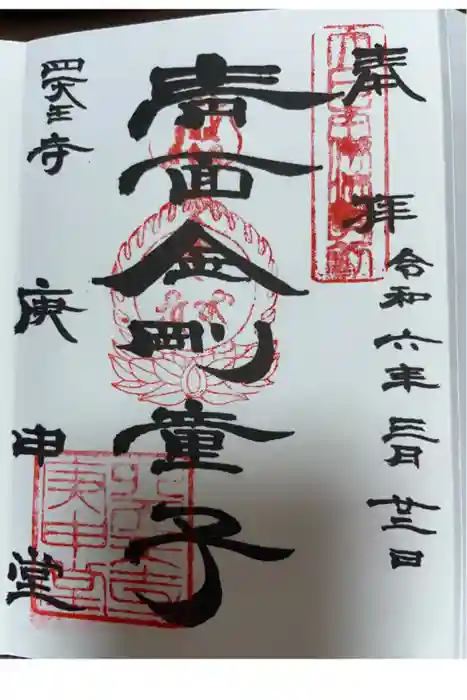 奉拝
令和六年三月廿三日
青面金剛童子
四天王寺
庚申堂
庚申堂